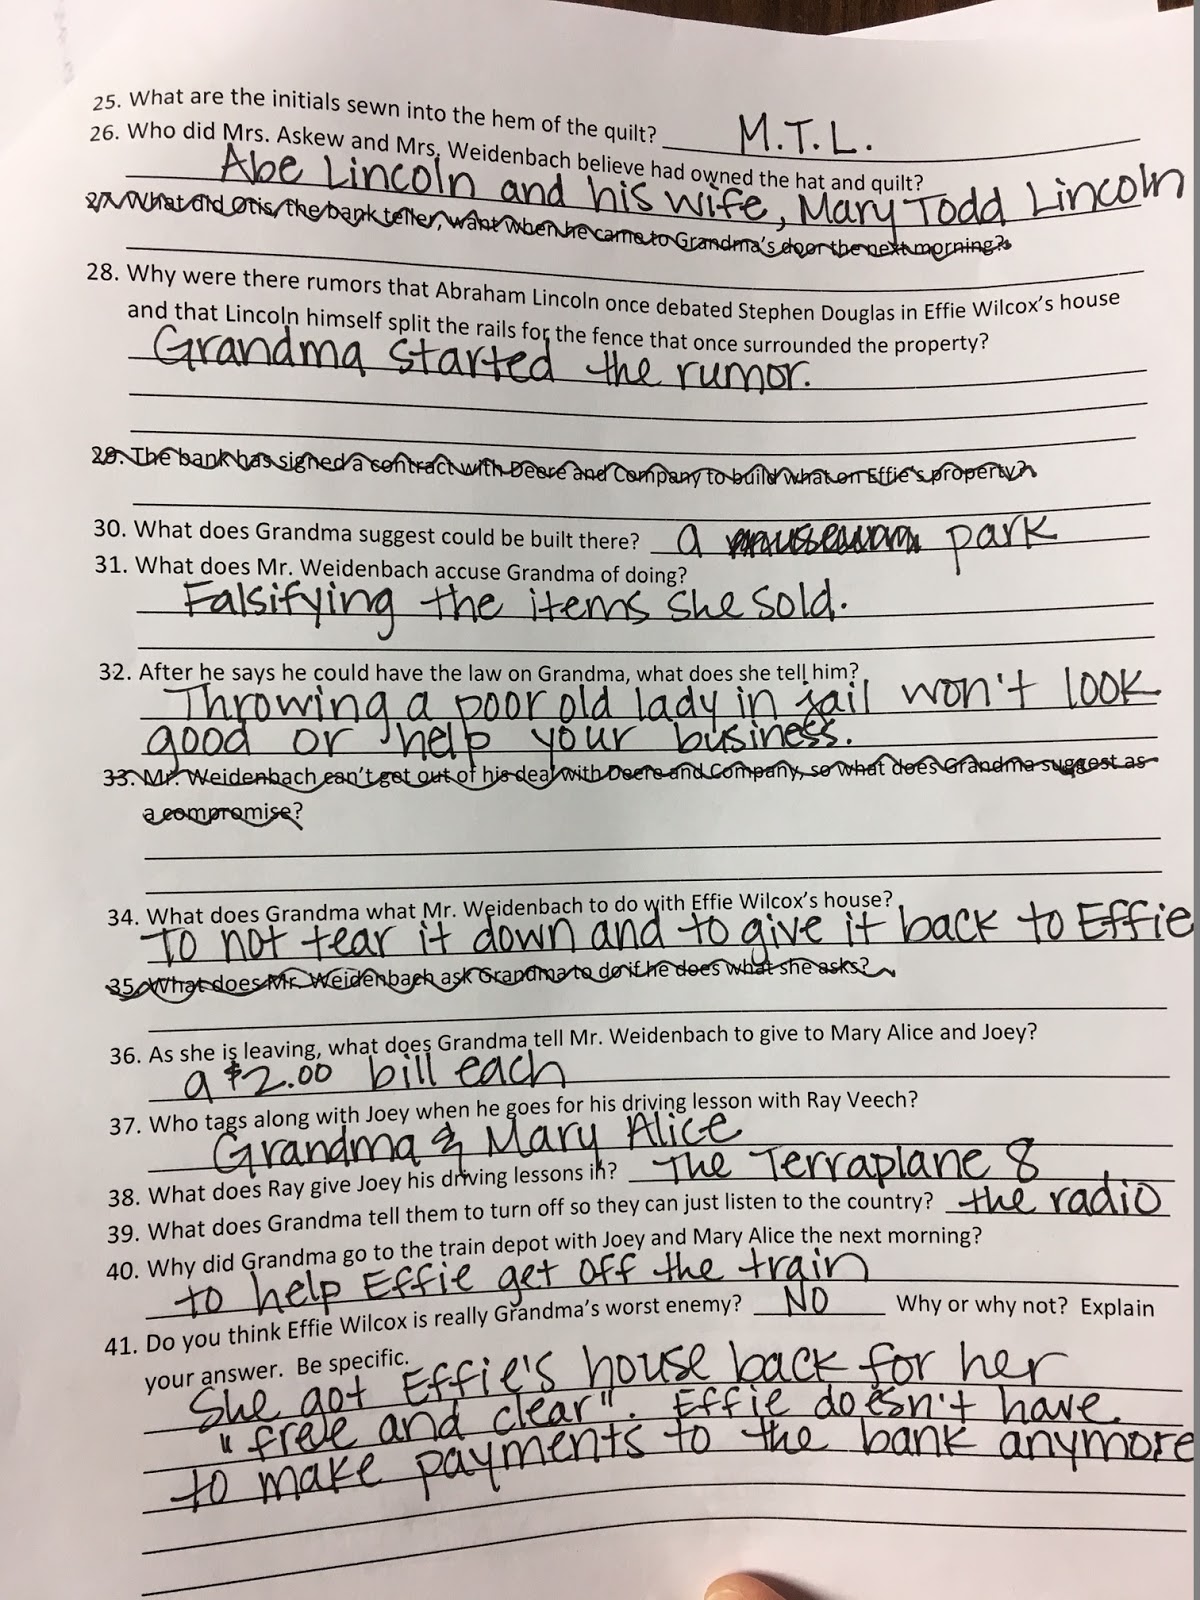 25. What are the initials sewn into the hem of the quilt? M.T.L.
26. Who did Mrs. Askew and Mrs. Weidenbach believe had owned the hat and quilt?
Abe Lincoln and his wife, Mary Todd Lincoln
27. What did Otis, the bank teller, want when he came to Grandma's door the next morning?
28. Why were there rumors that Abraham Lincoln once debated Stephen Douglas in Effie Wilcox's house
and that Lincoln himself split the rails for the fence that once surrounded the property?
Grandma started the rumor.
29. The bank has signed a contract with Deere and Company to build what on Effie's property?
30. What does Grandma suggest could be built there? a museum park
31. What does Mr. Weidenbach accuse Grandma of doing?
Falsifying the items she sold.
32. After he says he could have the law on Grandma, what does she tell him?
Throwing a poor old lady in jail won't look
good or help your business.
33. Mr. Weidenbach can't get out of his deal with Deere and Company, so what does Grandma suggest as
a compromise?
34. What does Grandma what Mr. Weidenbach to do with Effie Wilcox's house?
to not tear it down and to give it back to Effie
35. What does Mr. Weidenbach ask Grandma to do if he does what she asks?
36. As she is leaving, what does Grandma tell Mr. Weidenbach to give to Mary Alice and Joey?
a $2.00 bill each
37. Who tags along with Joey when he goes for his driving lesson with Ray Veech?
Grandma & Mary Alice
38. What does Ray give Joey his driving lessons in? The Terraplane 8
39. What does Grandma tell them to turn off so they can just listen to the country? the radio
40. Why did Grandma go to the train depot with Joey and Mary Alice the next morning?
to help Effie get off the train
41. Do you think Effie Wilcox is really Grandma's worst enemy? NO Why or why not? Explain
your answer. Be specific.
She got Effie's house back for her
"free and clear". Effie doesn't have
to make payments to the bank anymore